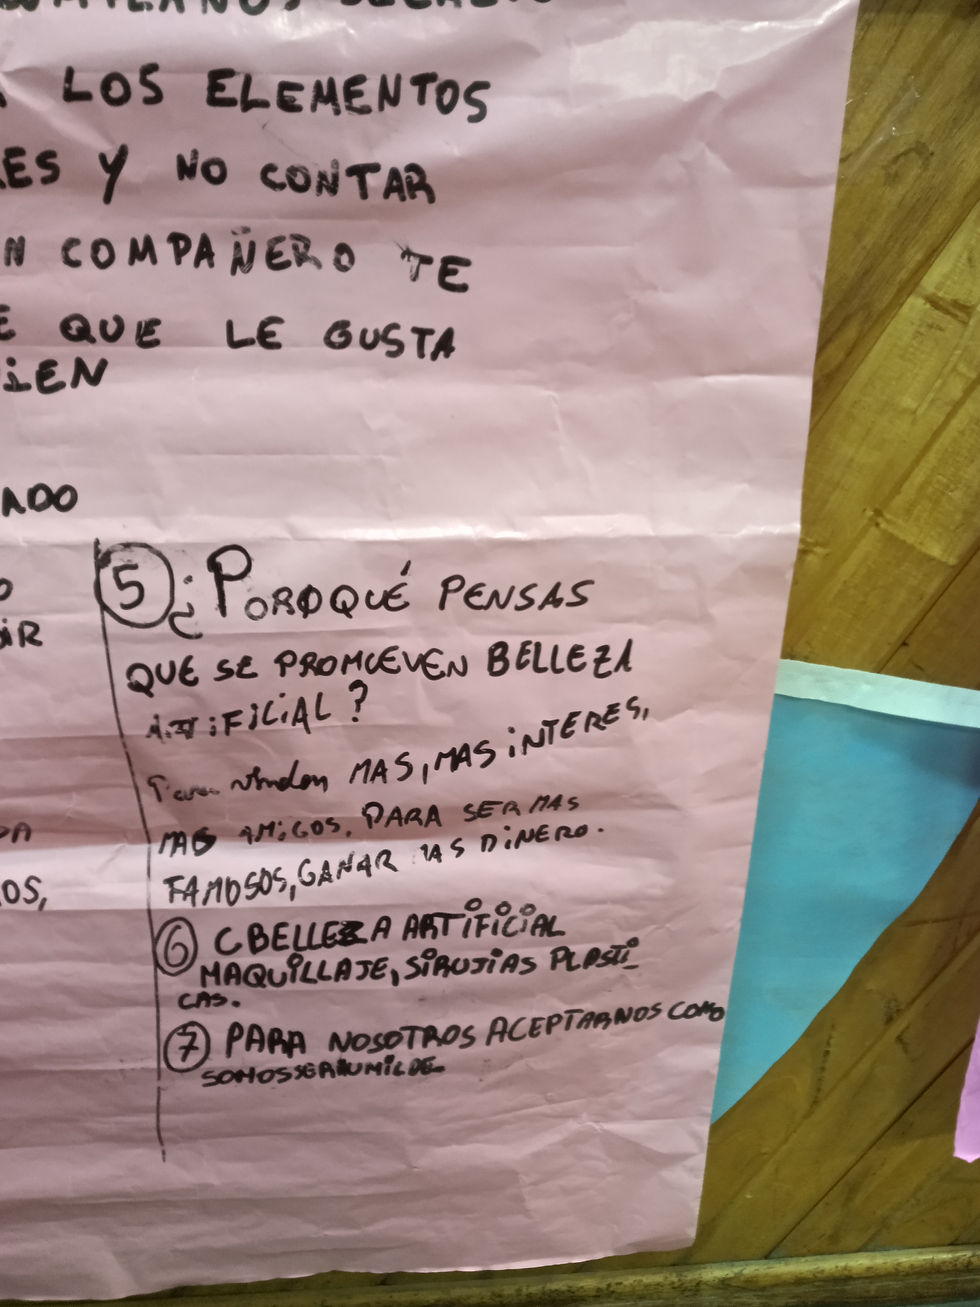 LOS ELEMENTOS
ES Y NO CONTAR
N COMPAÑERO TE
E QUE LE GUSTA
IEN
ADO
O
IR
DA
OS,
5 ¿PORQUÉ PENSAS
QUE SE PROMUEVEN BELLEZA
ARTIFICIAL?
Para vendan MAS, MAS INTERES,
MAS AMIGOS. PARA SER MAS
FAMOSOS, GANAR MAS DINERO.
6 CBELLEZA ARTIFICIAL
MAQUILLAJE, SIRUJIAS PLASTI_
CAS.
7 PARA NOSOTROS ACEPTARNOS COMO
SOMOS SER HUMILDE.